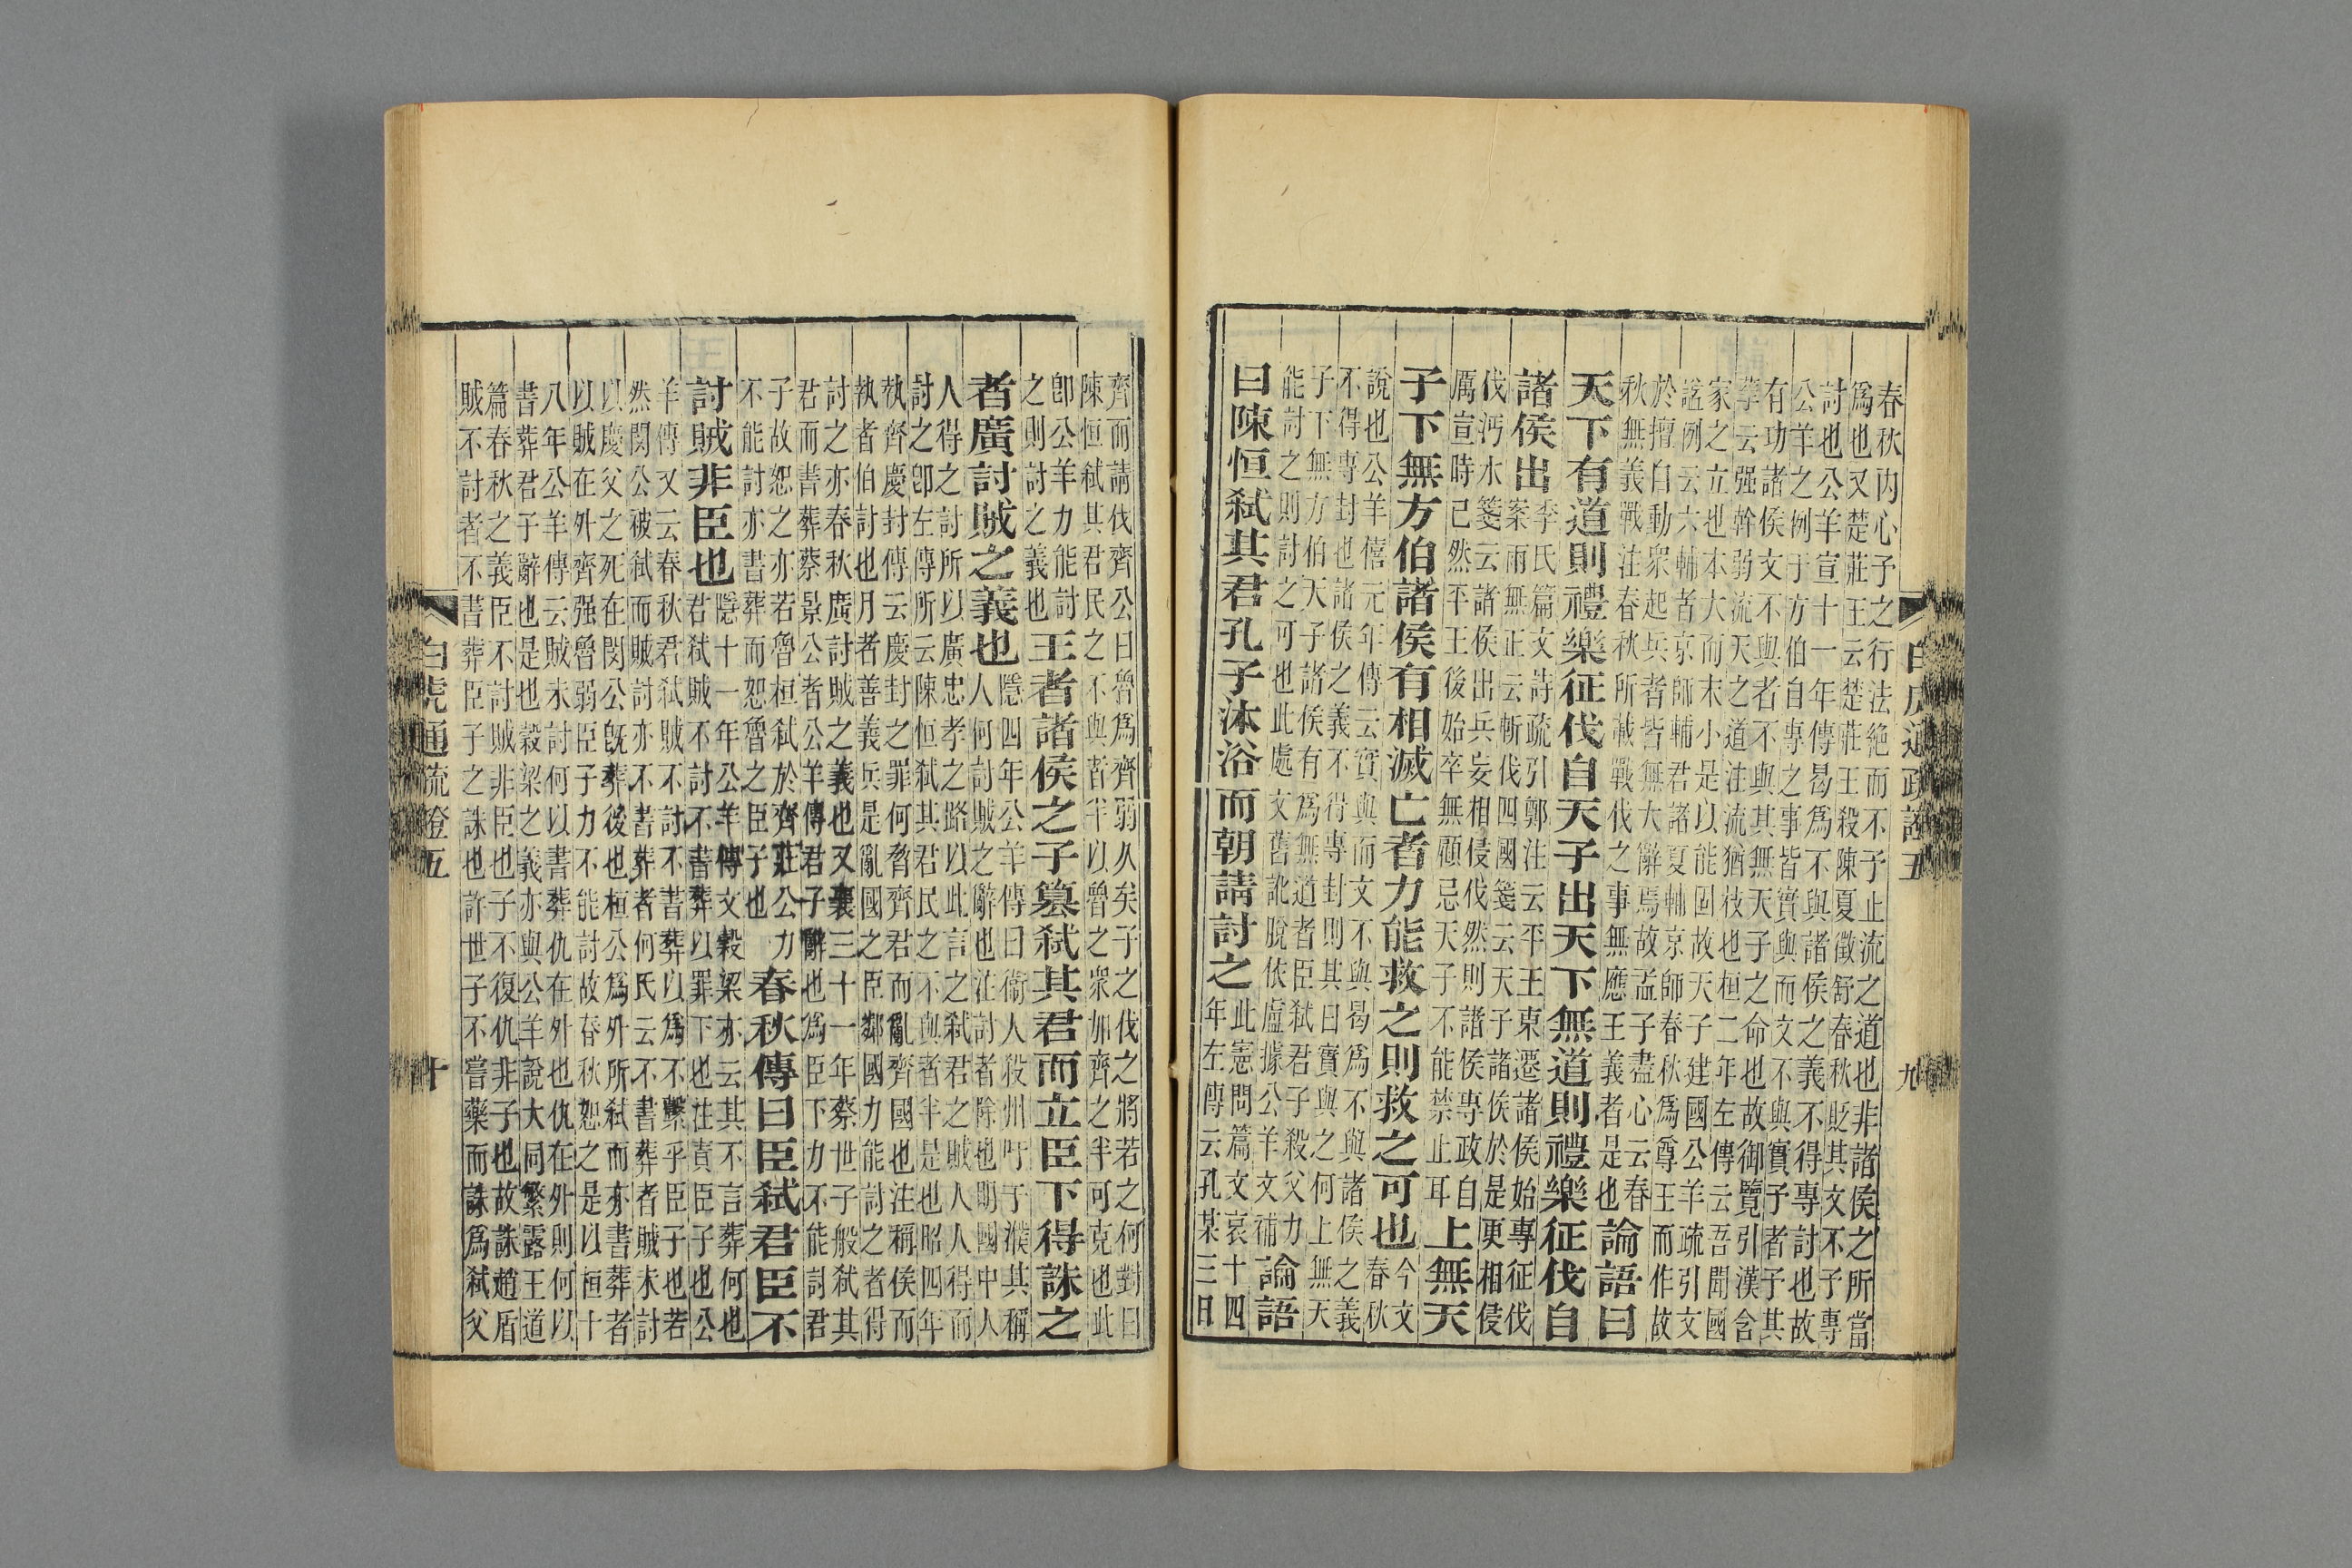 春秋内心子之行法絶而不予止流之道也非諸侯之所當
爲也又楚莊王云楚莊王殺陳夏徵舒春秋貶其文不予專
討也公羊宣十一年傳曷爲不與諸侯之義不得專討也故
公羊之例于方伯自專之事皆實與而文不與實予者予其
有功諸侯文不與者不與其無天子之命也故御覽引漢含
孳云强幹弱流天之道注流猶枝也桓二年左傳云吾聞國
家之立也本大而末小是以能固故天子建國公羊疏引文
諡例云六輔者京師輔君諸夏輔京師春秋爲尊王而作故
於擅自動衆起兵者皆無大辭焉故孟子盡心云春
秋無義戰注春秋所載戰伐之事無應王義者是也
論語曰
天下有道則禮樂征伐自天子出天下無道則禮樂征伐自
諸侯出
李氏篇文詩疏引鄭注云平王東遷諸侯始專征伐
案雨無正云斬伐四國箋云天子諸侯於是更相侵
伐沔水箋云諸侯出兵妄相侵伐然則諸侯專政自
厲宣時已然平王後始卒無顧忌天子不能禁止耳
上無天
子下無方伯諸侯有相滅亡者力能救之則救之可也
今文
春秋
說也公羊僖元年傳云實與而文不與曷爲不與諸侯之義
不得專封也諸侯之義不得專封則其曰實與之何上無天
子下無方伯天子諸侯有爲無道者臣弑君子殺父力
能討之則討之可也此處文舊訛脫依盧據公羊文補
論語
曰陳恒弑其君孔子沐浴而朝請討之
此憲問篇文哀十四
年左傳云孔某三日
白虎通疏證五
九
齊而請伐齊公曰魯爲齊弱久矣子之伐之將若之何對曰
陳恒弑其君民之不與者半以魯之衆加齊之半可克也此
卽公羊力能討
之則討之義也
王者諸侯之子簒弑其君而立臣下得誅之
者廣討賊之義也
隱四年公羊傳曰衞人殺州吁于濮其稱
人何討賊之辭也注討者除也明國中人
人得之討所以廣忠孝之路以此言之弑君之賊人人得而
討之卽左傳所云陳恒弑其君民之不與者半是也昭四年
執齊慶封傳云慶封之罪何脅齊君而亂齊國也注稱侯而
執者伯討也月者善義兵是亂國之臣鄰國力能討之者得
討之亦春秋廣討賊之義也又襄三十一年蔡世子般弑其
君而書葬蔡景公者公羊傳君子辭也爲臣下力不能討君
子故恕之亦若魯桓弑於齊莊公力
不能討亦書葬而恕魯之臣子也
春秋傳曰臣弑君臣不
討賊非臣也
隱十一年公羊傳文穀梁亦云其不言葬何也
君弑賊不討不書葬以罪下也注責臣子也公
羊傳又云春秋君弑賊不討不書葬以爲不繫乎臣子也若
然閔公被弑而賊討亦不書葬者何氏云不書葬者賊未討
以慶父之死在閔公旣葬後也桓公爲外所弑而亦書葬者
以賊在外齊强魯弱臣子力不能討故春秋恕之是以桓十
八年公羊傳云賊未討何以書葬仇在外也仇在外則何以
書葬君子辭也是也穀梁之義亦與公羊說大同繁露王道
篇春秋之義臣不討賊非臣也子不復仇非子也故誅趙盾
賊不討者不書葬臣子之誅也許世子不嘗藥而誅爲弑父
白虎通疏證五
十